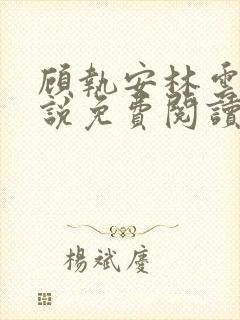 顾執安林雲
說免費閱讀
楊斌慶